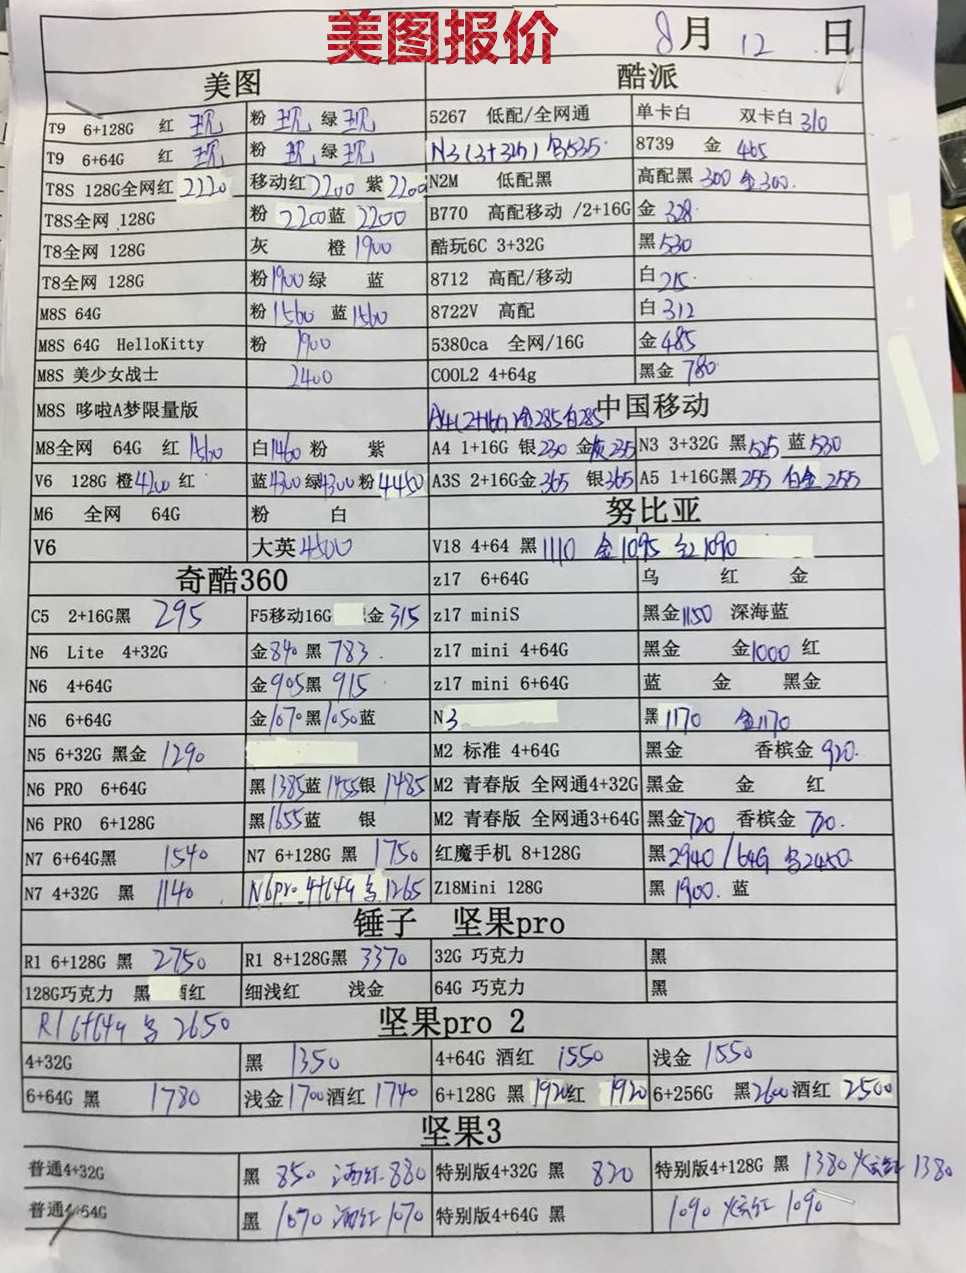 美图报价 8月12日
美图 酷派
T9 6+128G 红 现 粉 现 绿 现 5267 低配/全网通 单卡白 双卡白 310
T9 6+64G 红 现 粉 现 绿 现 N3(3+32G) 465 8739 金 465
T8S 128G全网红 2220 移动红 2200 紫 2200 N2M 低配黑 高配黑 300 金 300.
T8S全网 128G 粉 2200 蓝 2200 B770 高配移动 /2+16G 金 328
T8全网 128G 灰 橙 1900 酷玩6C 3+32G 黑 530
T8全网 128G 粉 1900 绿 蓝 8712 高配/移动 白 215.
M8S 64G 粉 1560 蓝 1560 8722V 高配 白 312
M8S 64G HelloKitty 粉 1900 5380ca 全网/16G 金 485
M8S 美少女战士 2400 COOL2 4+64g 黑金 780
M8S 哆啦A梦限量版 A4(2+16G) 金 285 白 285 中国移动
M8全网 64G 红 1560 白 1460 粉 紫 A4 1+16G 银 230 金 灰 235 N3 3+32G 黑 525 蓝 530
V6 128G 橙 4200 红 蓝 4300 绿 4300 粉 4450 A3S 2+16G金 365 银 365 A5 1+16G黑 255 白金 255
M6 全网 64G 粉 白 努比亚
V6 大英 4800 V18 4+64 黑 1110 金 1095 红 1090
奇酷360 z17 6+64G 乌 红 金
C5 2+16G黑 295 F5移动16G 金 315 z17 miniS 黑金 1150 深海蓝
N6 Lite 4+32G 金 840 黑 783. z17 mini 4+64G 黑金 金 1000 红
N6 4+64G 金 905 黑 915 z17 mini 6+64G 蓝 金 黑金
N6 6+64G 金 1070 黑 1050 蓝 N3 黑 1170 金 1170
N5 6+32G 黑金 1290 M2 标准 4+64G 黑金 香槟金 920.
N6 PRO 6+64G 黑 1385 蓝 1455 银 1485 M2 青春版 全网通4+32G 黑金 金 红
N6 PRO 6+128G 黑 1655 蓝 银 M2 青春版 全网通3+64G 黑金 720 香槟金 720.
N7 6+64G黑 1540 N7 6+128G 黑 1750 红魔手机 8+128G 黑 2940 /64G 2450.
N7 4+32G 黑 1140 N6pro 4+64g 1265 Z18Mini 128G 黑 1900. 蓝
锤子 坚果pro
R1 6+128G 黑 2750 R1 8+128G黑 3370 32G 巧克力 黑
128G巧克力 黑 酒红 细浅红 浅金 64G 巧克力 黑
R1 6+64g 2650 坚果pro 2
4+32G 黑 1350 4+64G 酒红 1550 浅金 1550
6+64G 黑 1780 浅金 1700 酒红 1740 6+128G 黑 1920 红 1920 6+256G 黑 2600 酒红 2500
坚果3
普通4+32G 黑 850 酒红 880 特别版4+32G 黑 820 特别版4+128G 黑 1380 炫红 1380
普通4+64G 黑 1070 酒红 1070 特别版4+64G 黑 1090 炫红 1090